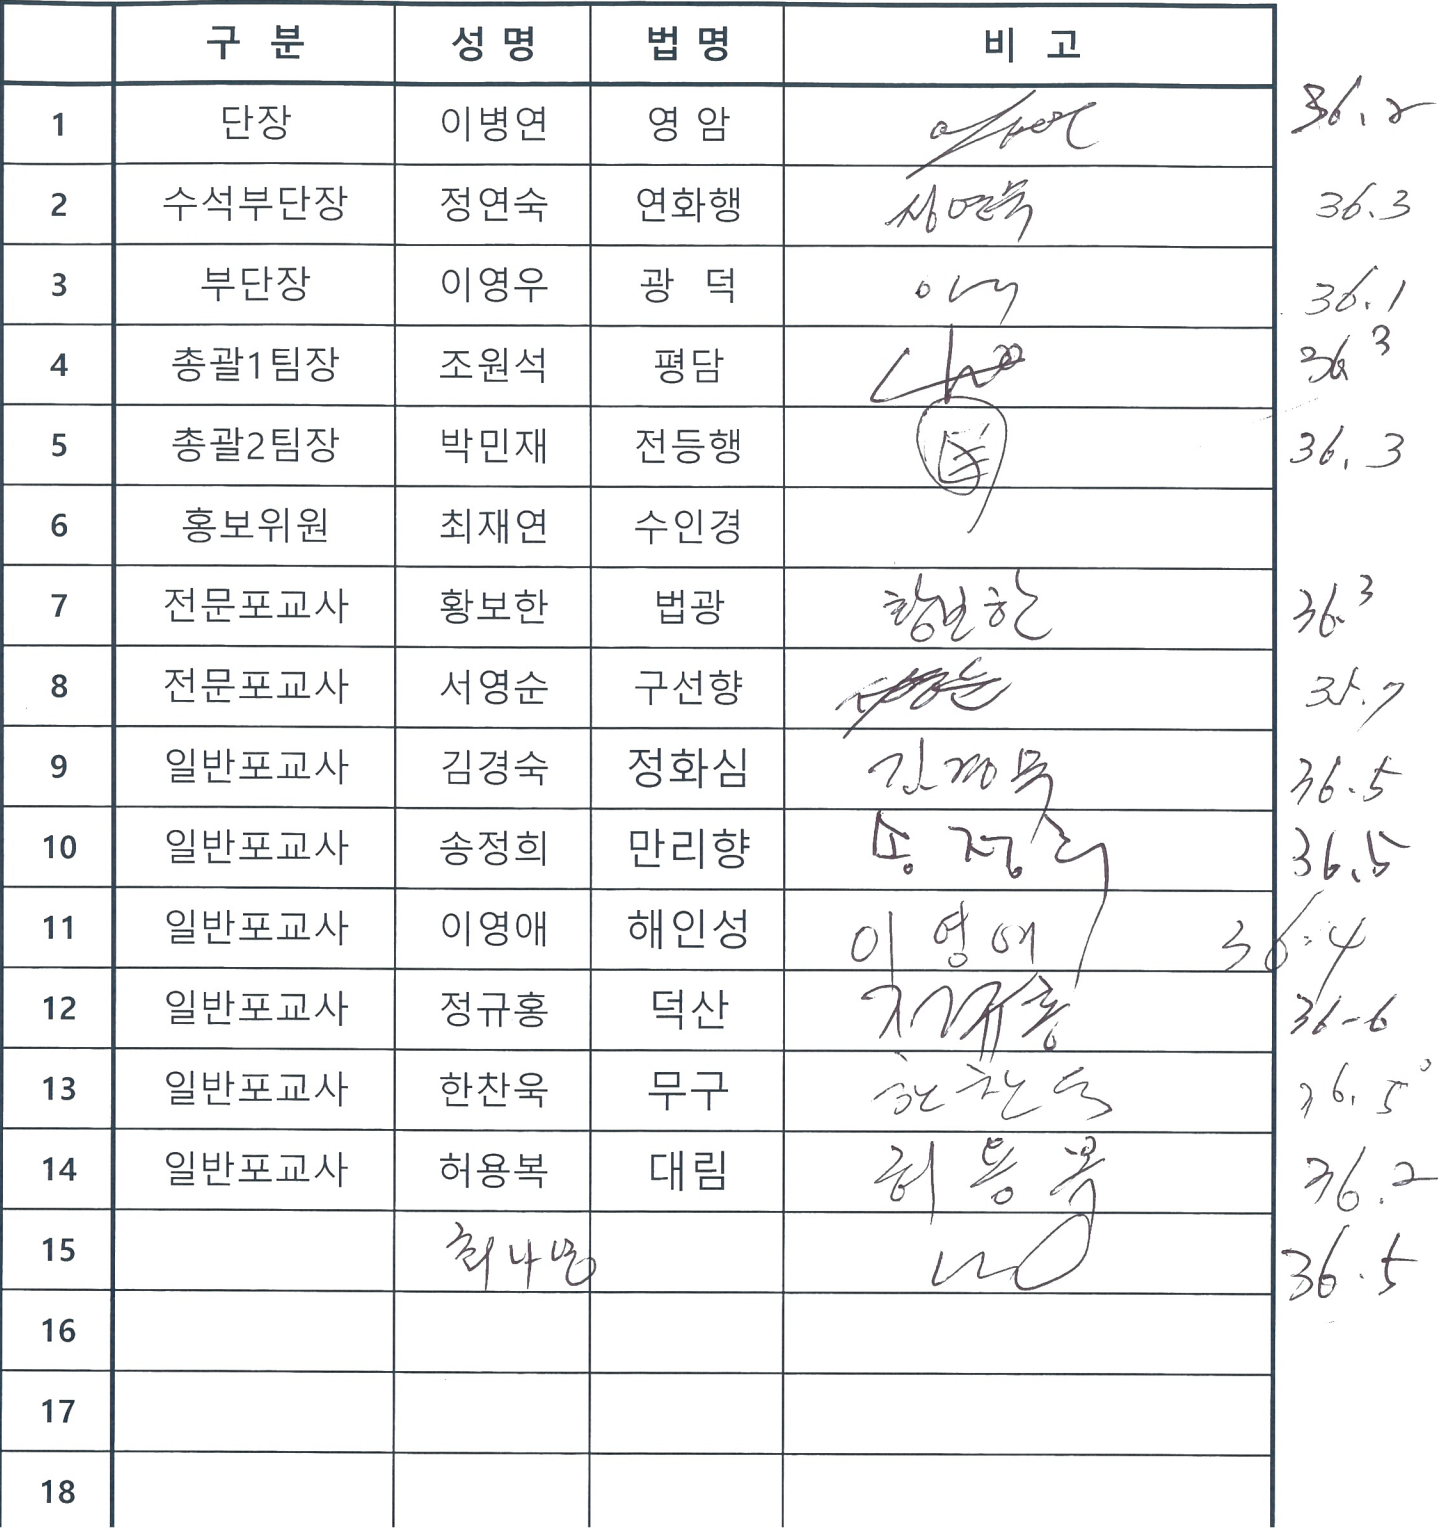 구 분 성 명 법 명 비 고
1 단장 이병연 영 암 36.2
2 수석부단장 정연숙 연화행 정연숙 36.3
3 부단장 이영우 광 덕 36.1
4 총괄1팀장 조원석 평담 36.3
5 총괄2팀장 박민재 전등행 36.3
6 홍보위원 최재연 수인경
7 전문포교사 황보한 법광 황보한 36.3
8 전문포교사 서영순 구선향 서영순 35.7
9 일반포교사 김경숙 정화심 김경숙 36.5
10 일반포교사 송정희 만리향 송정희 36.5
11 일반포교사 이영애 해인성 이영애 36.4
12 일반포교사 정규홍 덕산 정규홍 36-6
13 일반포교사 한찬욱 무구 한찬욱 36.5°
14 일반포교사 허용복 대림 허용복 36.2
15 36.5
16
17
18